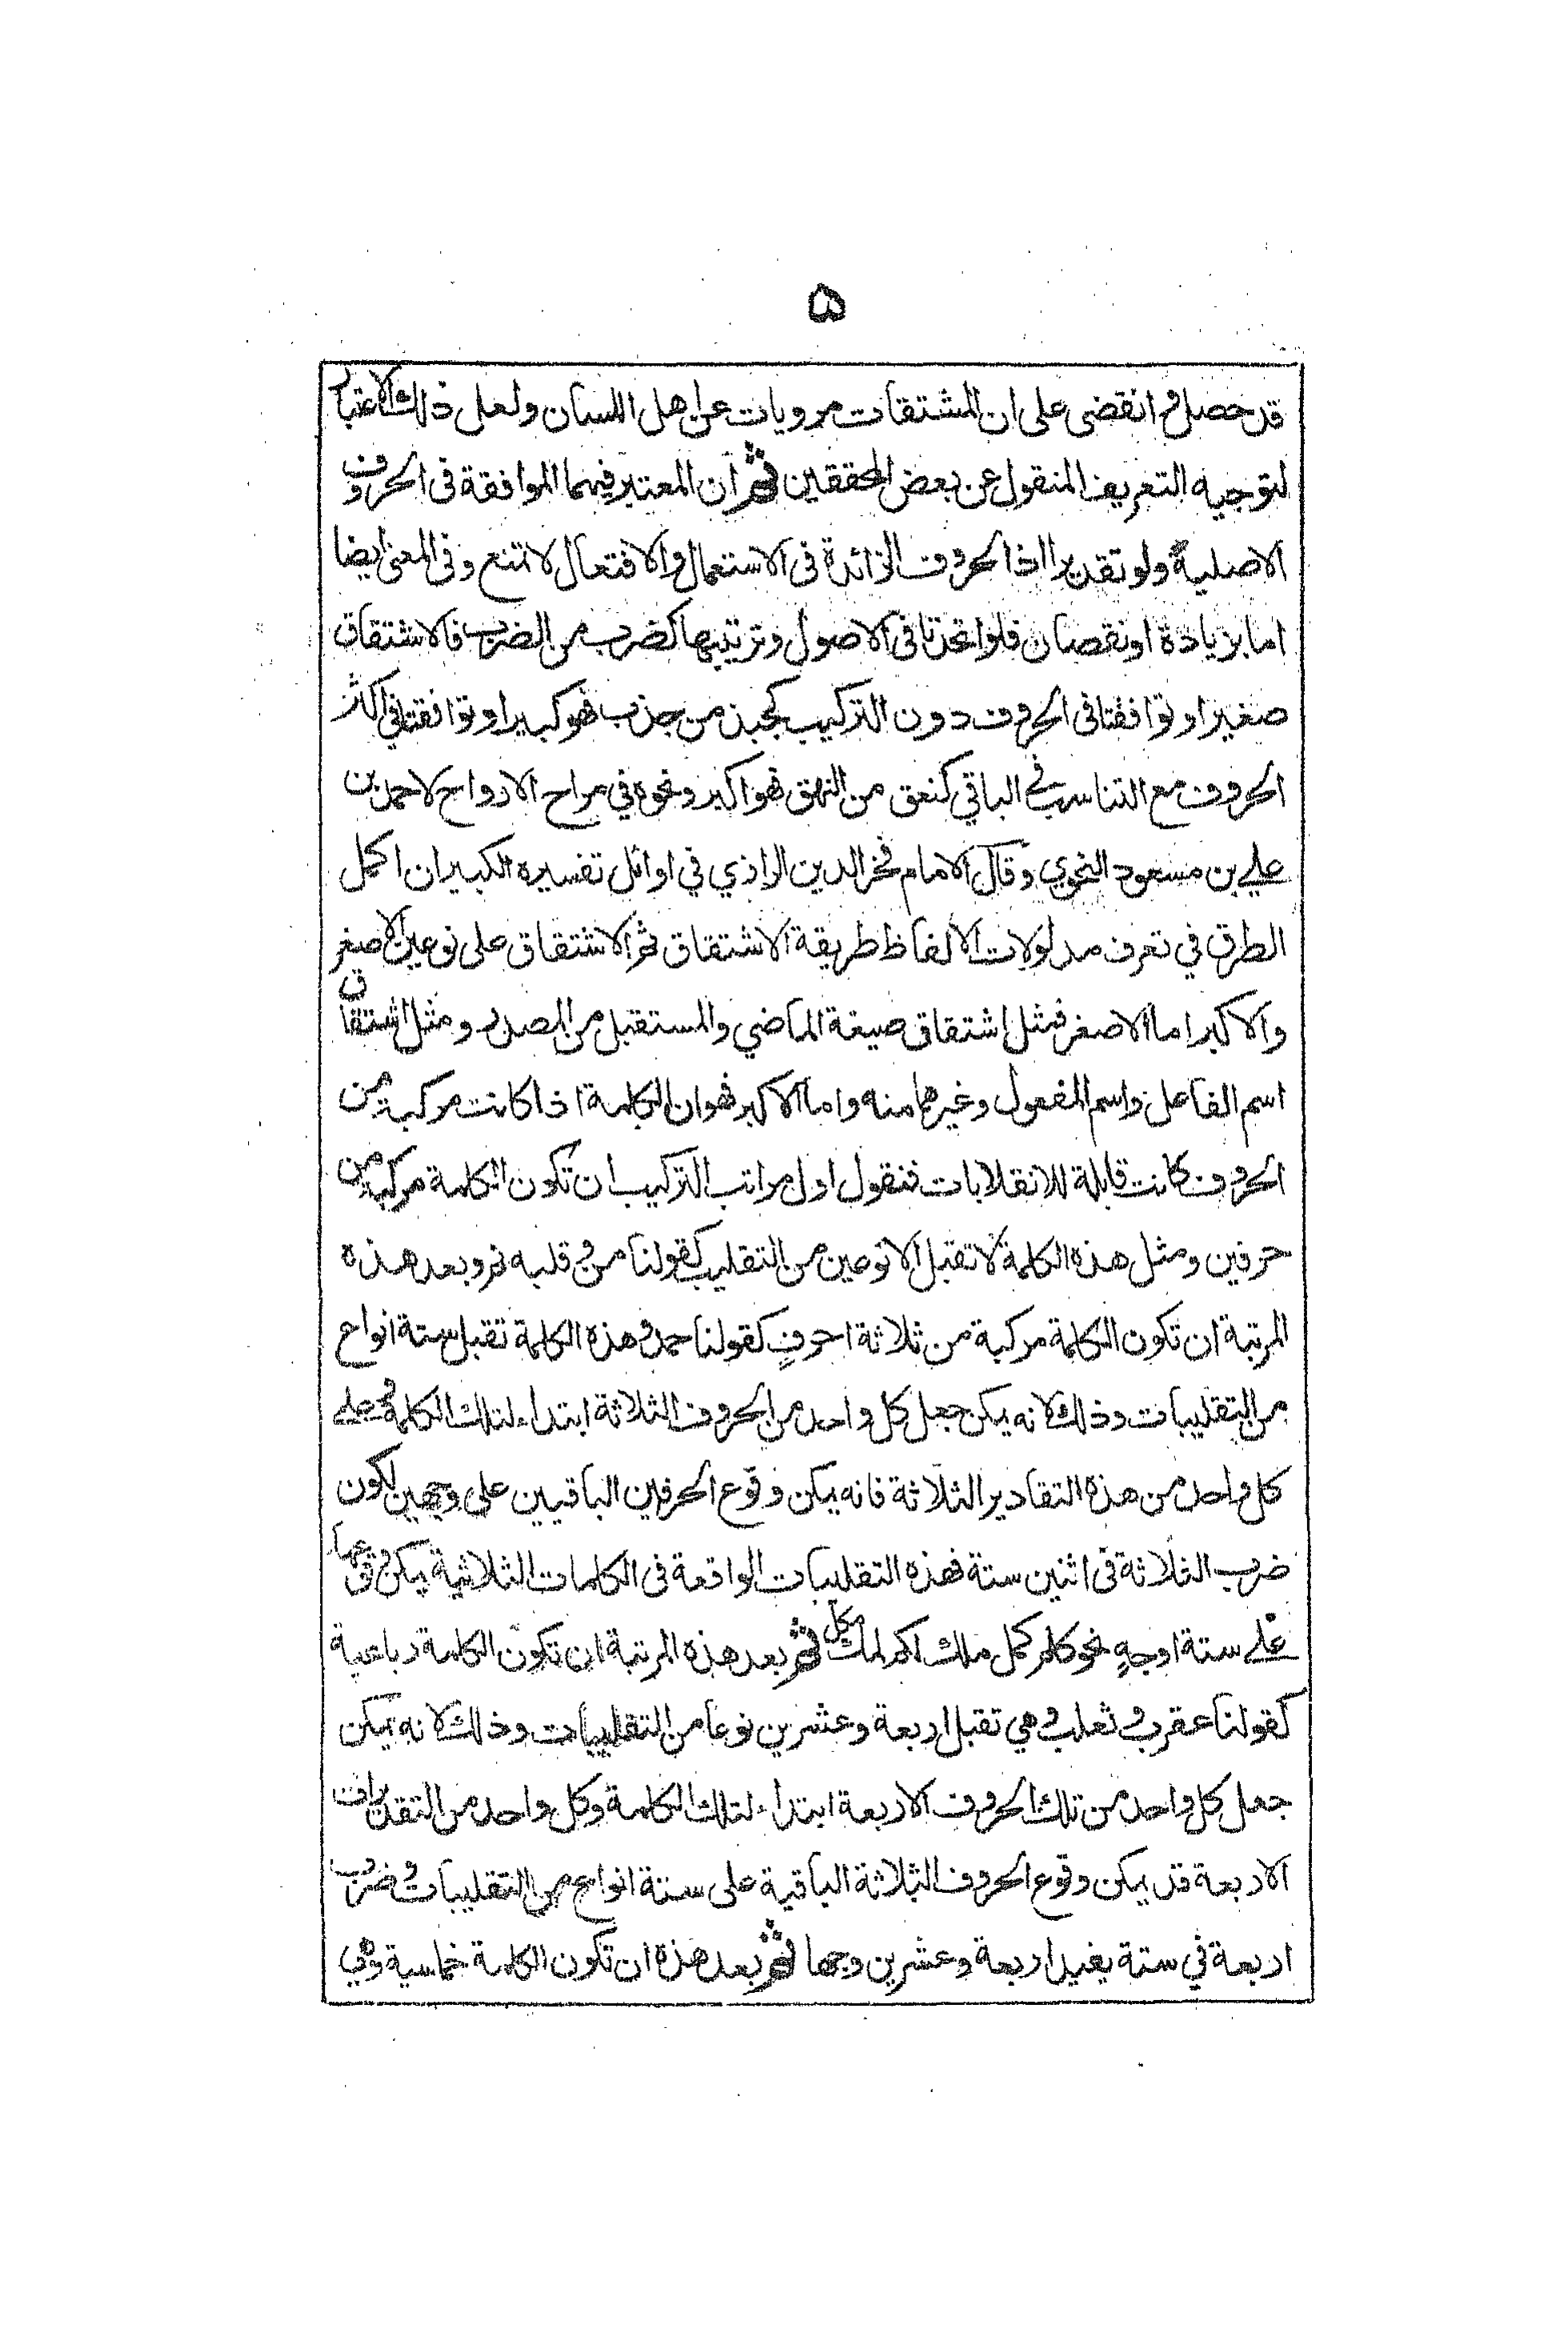 ۵
قد حصل و انقضى على ان المشتقات مرويات عن اهل اللسان ولعل ذلك الاعتبار
لتوجيه التعريف المنقول عن بعض المحققين ثم ان المعتبر فيهما الموافقة فى الحروف
الاصلية ولو تقديرا اذ الحروف الزائدة فى الاستعمال والافتعال لا تمنع وفى المعنى ايضا
اما بزيادة او نقصان فلو اتحدتا فى الاصول وترتيبها كضرب من الضرب فالاشتقاق
صغير او توافقتا فى الحروف دون التركيب كجبذ من جذب فهو كبير او توافقتا في اكثر
الحروف مع التناسب في الباقي كنعق من النهق فهو اكبر ونحوه في مراح الارواح لاحمد بن
علي بن مسعود النحوي وقال الامام فخر الدين الرازي في اوائل تفسيره الكبير ان اكمل
الطرق في تعرف مدلولات الالفاظ طريقة الاشتقاق ثم الاشتقاق على نوعين الاصغر
والاكبر اما الاصغر فمثل اشتقاق صيغة الماضي والمستقبل من المصدر ومثل اشتقاق
اسم الفاعل واسم المفعول وغيرهما منه واما الاكبر فهو ان الكلمة اذا كانت مركبة من
الحروف كانت قابلة للانقلابات فنقول اول مراتب التركيب ان تكون الكلمة مركبة من
حرفين ومثل هذه الكلمة لا تقبل الا نوعين من التقليب كقولنا من و قلبه نم وبعد هذه
المرتبة ان تكون الكلمة مركبة من ثلاثة احرفٍ كقولنا حمد و هذه الكلمة تقبل ستة انواع
من التقليبات وذلك لانه يمكن جعل كل واحد من الحروف الثلاثة ابتداء لتلك الكلمة و على
كل واحد من هذه التقادير الثلاثة فانه يمكن وقوع الحرفين الباقيين على وجهين لكون
ضرب الثلاثة فى اثنين ستة فهذه التقليبات الواقعة فى الكلمات الثلاثية يمكن وقوعها
على ستة اوجهٍ نحو كلم كمل ملك لكم لمك مكل ثم بعد هذه المرتبة ان تكون الكلمة رباعية
كقولنا عقرب و ثعلب و هي تقبل اربعة وعشرين نوعا من التقليبات وذلك لانه يمكن
جعل كل واحد من تلك الحروف الاربعة ابتداء لتلك الكلمة وكل واحد من التقديرات
الاربعة قد يمكن وقوع الحروف الثلاثة الباقية على ستة انواع من التقليبات و ضرب
اربعة في ستة يفيد اربعة وعشرين وجها ثم بعد هذه ان تكون الكلمة خماسية وهي